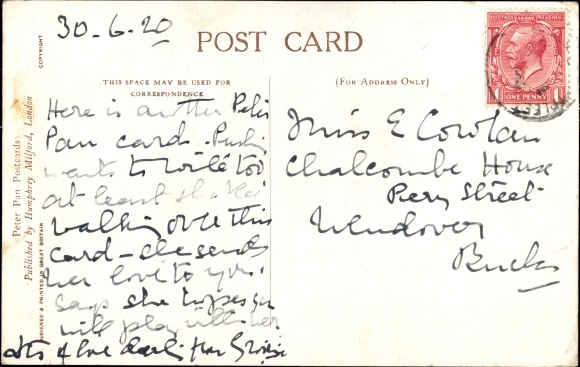 30-6-20
COPYRIGHT
POST CARD
POSTAGE REVENUE
ONE PENNY
THIS SPACE MAY BE USED FOR
CORRESPONDENCE
(FOR ADDRESS ONLY)
Here is another Peter
Pan card. Pushy
wants to write too
at least she
walking over this
card - she sends
her love to you,
says she hopes you
will play with her
lots of love darling from
Miss E Cowtan
Chalcombe House
Perry Street
Wendover
Bucks
Peter Pan Postcards
Published by Humphrey Milford, London
DESIGNED & PRINTED IN GREAT BRITAIN